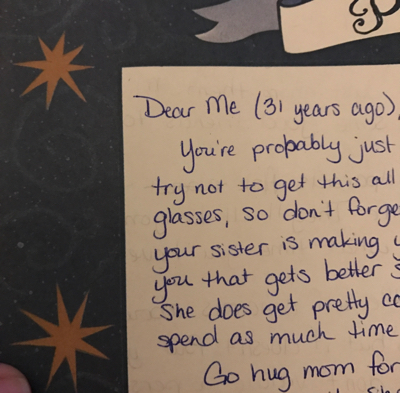 P
Dear Me (31 years ago),
You're probably just
try not to get this all
glasses, so don't forge
your sister is making y
you that gets better s
She does get pretty co
spend as much time
Go hug mom for